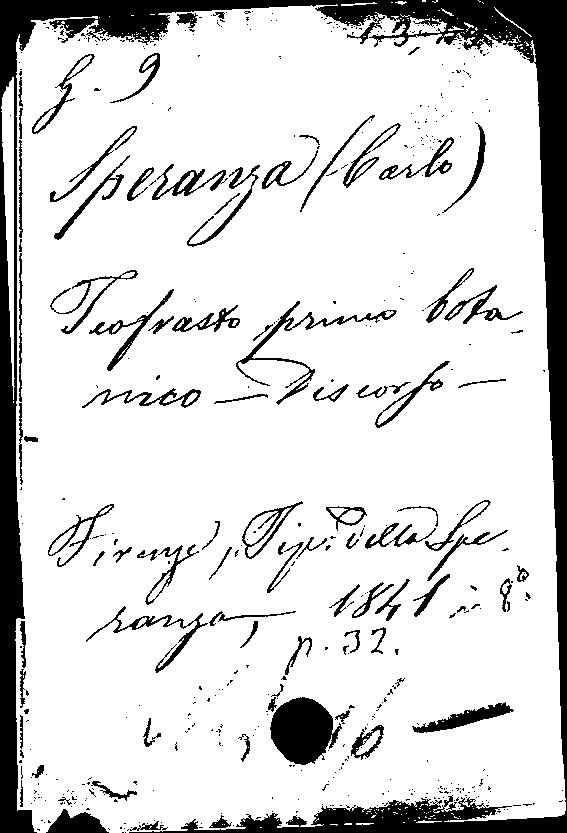 G. 9
Speranza (Carlo)
Teofrasto primo bota-
nico — Discorso —
Firenze, Tip. della Spe-
ranza, 1841 in 8°.
p. 32.